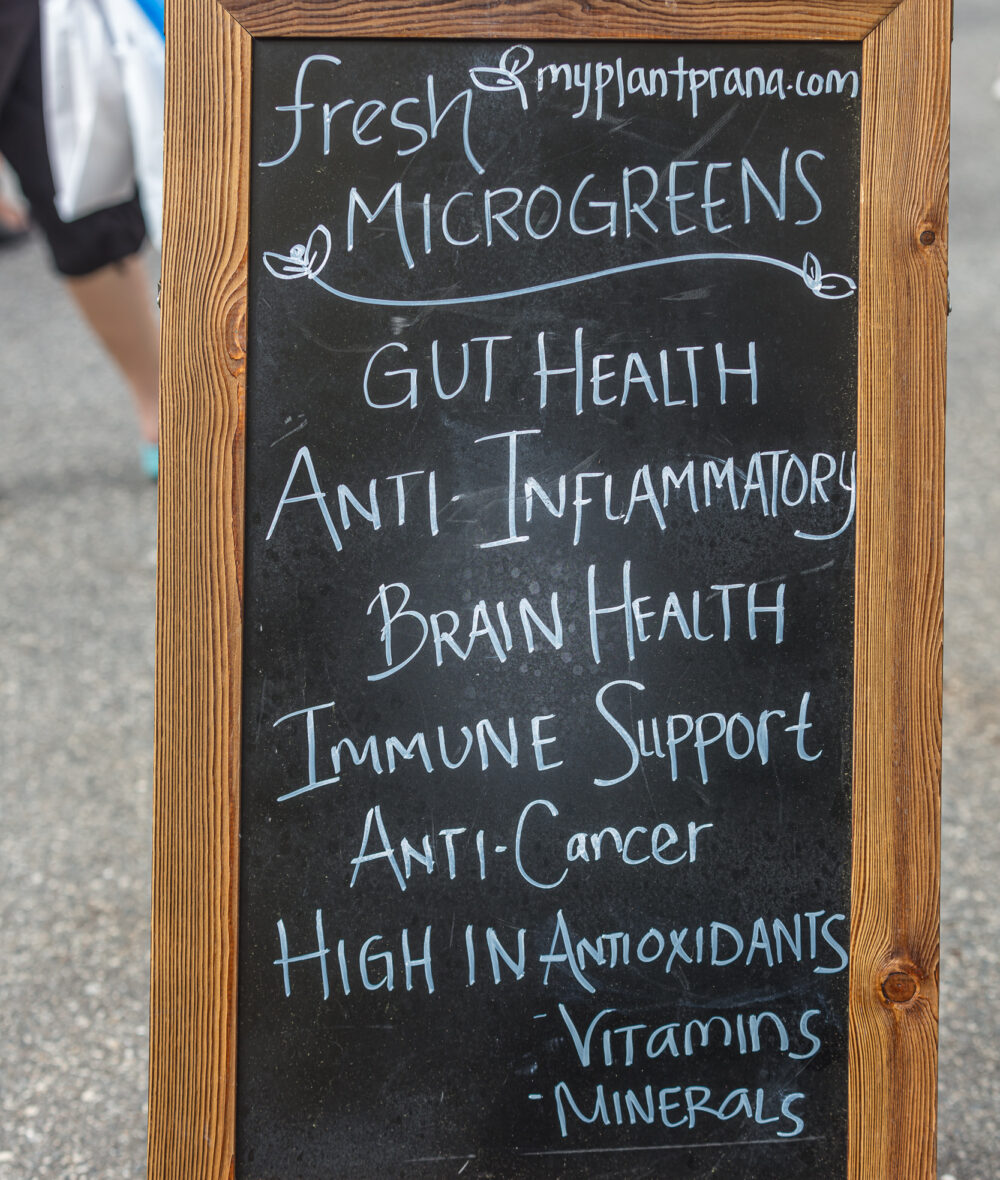 fresh myplantprana.com
MICROGREENS
GUT HEALTH
ANTI-INFLAMMATORY
BRAIN HEALTH
IMMUNE SUPPORT
ANTI-Cancer
HIGH IN ANTIOXIDANTS
- VITAMINS
- MINERALS